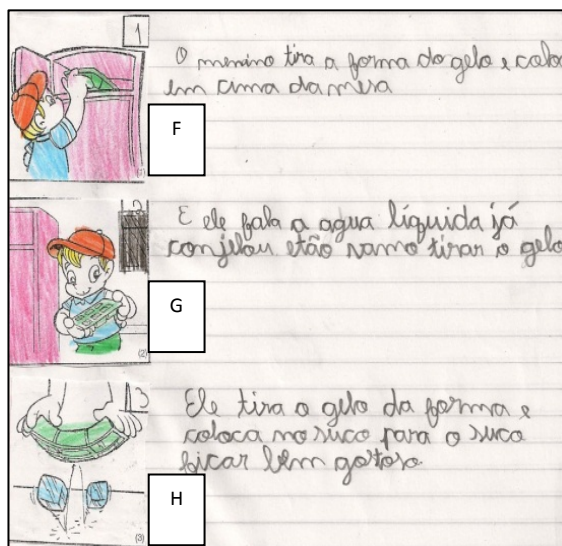 1
O menino tira a forma do gelo e colo
em cima da mesa
F
(1)
2
E ele fala a agua líquida já
conjelou etão vamo tirar o gelo
G
(2)
3
Ele tira o gelo da forma e
coloca no suco para o suco
ficar bem gostoso
H
(3)